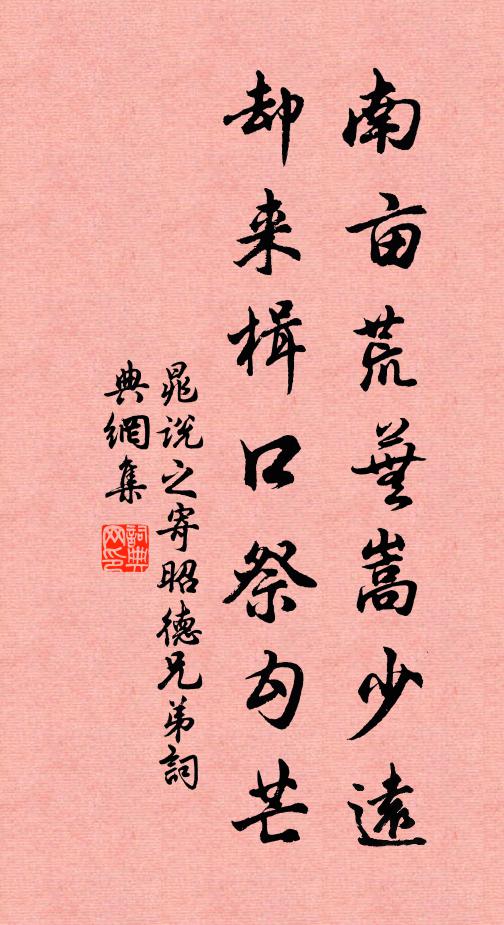 南亩荒芜嵩少遠
却来楫口祭勾芒
晁说之寄昭德兄弟詞
典網集
詞典網印